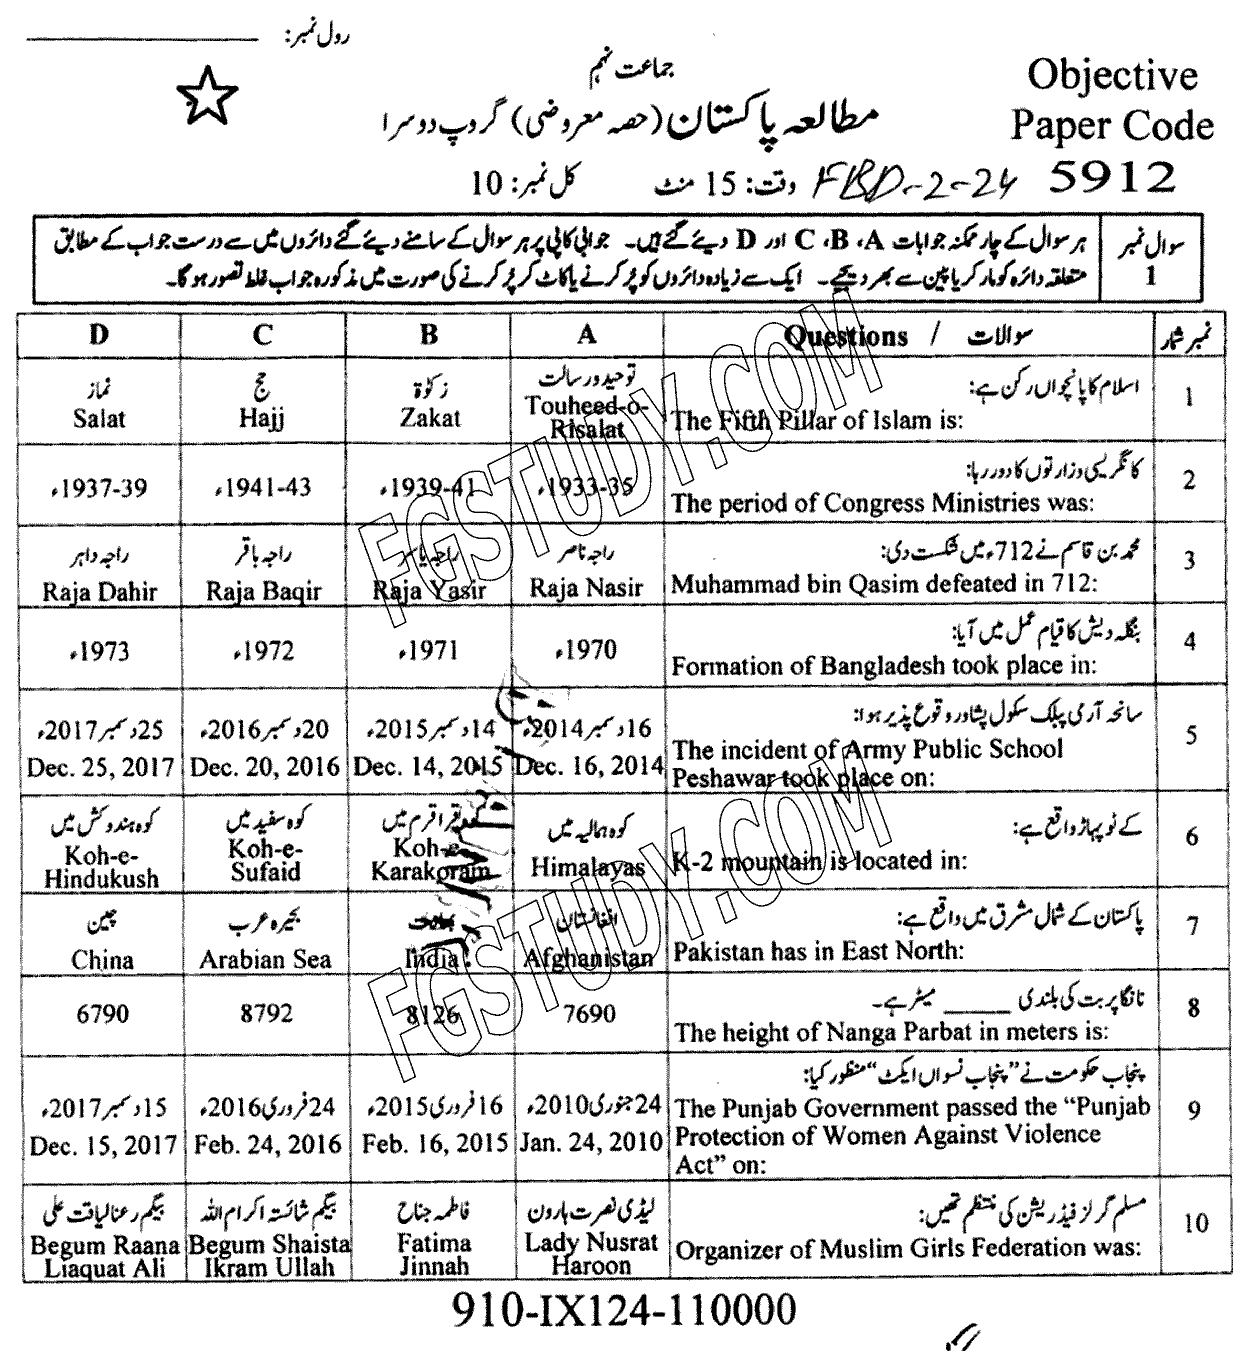 رول نمبر: ____________
جماعت نہم
Objective
مطالعہ پاکستان (حصہ معروضی) گروپ دوسرا
Paper Code
وقت: 15 منٹ
کل نمبر: 10
FBD-2-24
5912
سوال نمبر 1
ہر سوال کے چار ممکنہ جوابات A، B، C اور D دیئے گئے ہیں۔ جوابی کاپی پر ہر سوال کے سامنے دیئے گئے دائروں میں سے درست جواب کے مطابق
متعلقہ دائرہ کو مارکر یا پین سے بھر دیجیے۔ ایک سے زیادہ دائروں کو پُر کرنے یا کاٹ کر پُر کرنے کی صورت میں مذکورہ جواب غلط تصور ہوگا۔
D C B A Questions / سوالات نمبر شمار
1
اسلام کا پانچواں رکن ہے:
The Fifth Pillar of Islam is:
توحید و رسالت
Touheed-o-
Risalat
زکوٰۃ
Zakat
حج
Hajj
نماز
Salat
2
کانگریسی وزارتوں کا دور رہا:
The period of Congress Ministries was:
1933-35ء
1939-41ء
1941-43ء
1937-39ء
3
محمد بن قاسم نے 712ء میں شکست دی:
Muhammad bin Qasim defeated in 712:
راجہ ناصر
Raja Nasir
راجہ یاسر
Raja Yasir
راجہ باقر
Raja Baqir
راجہ داہر
Raja Dahir
4
بنگلہ دیش کا قیام عمل میں آیا:
Formation of Bangladesh took place in:
1970ء
1971ء
1972ء
1973ء
5
سانحہ آرمی پبلک سکول پشاور وقوع پذیر ہوا:
The incident of Army Public School
Peshawar took place on:
16 دسمبر 2014ء
Dec. 16, 2014
14 دسمبر 2015ء
Dec. 14, 2015
20 دسمبر 2016ء
Dec. 20, 2016
25 دسمبر 2017ء
Dec. 25, 2017
6
کے ٹو پہاڑ واقع ہے:
K-2 mountain is located in:
کوہ ہمالیہ میں
Himalayas
کوہ قراقرم میں
Koh-e-
Karakoram
کوہ سفید میں
Koh-e-
Sufaid
کوہ ہندوکش میں
Koh-e-
Hindukush
7
پاکستان کے شمال مشرق میں واقع ہے:
Pakistan has in East North:
افغانستان
Afghanistan
بھارت
India
بحیرہ عرب
Arabian Sea
چین
China
8
نانگا پربت کی بلندی ______ میٹر ہے۔
The height of Nanga Parbat in meters is:
7690
8126
8792
6790
9
پنجاب حکومت نے "پنجاب نسواں ایکٹ" منظور کیا:
The Punjab Government passed the “Punjab
Protection of Women Against Violence
Act” on:
24 جنوری 2010ء
Jan. 24, 2010
16 فروری 2015ء
Feb. 16, 2015
24 فروری 2016ء
Feb. 24, 2016
15 دسمبر 2017ء
Dec. 15, 2017
10
مسلم گرلز فیڈریشن کی منتظم تھیں:
Organizer of Muslim Girls Federation was:
لیڈی نصرت ہارون
Lady Nusrat
Haroon
فاطمہ جناح
Fatima
Jinnah
بیگم شائستہ اکرام اللہ
Begum Shaista
Ikram Ullah
بیگم رعنا لیاقت علی
Begum Raana
Liaquat Ali
910-IX124-110000
FGSTUDY.COM
FGSTUDY.COM